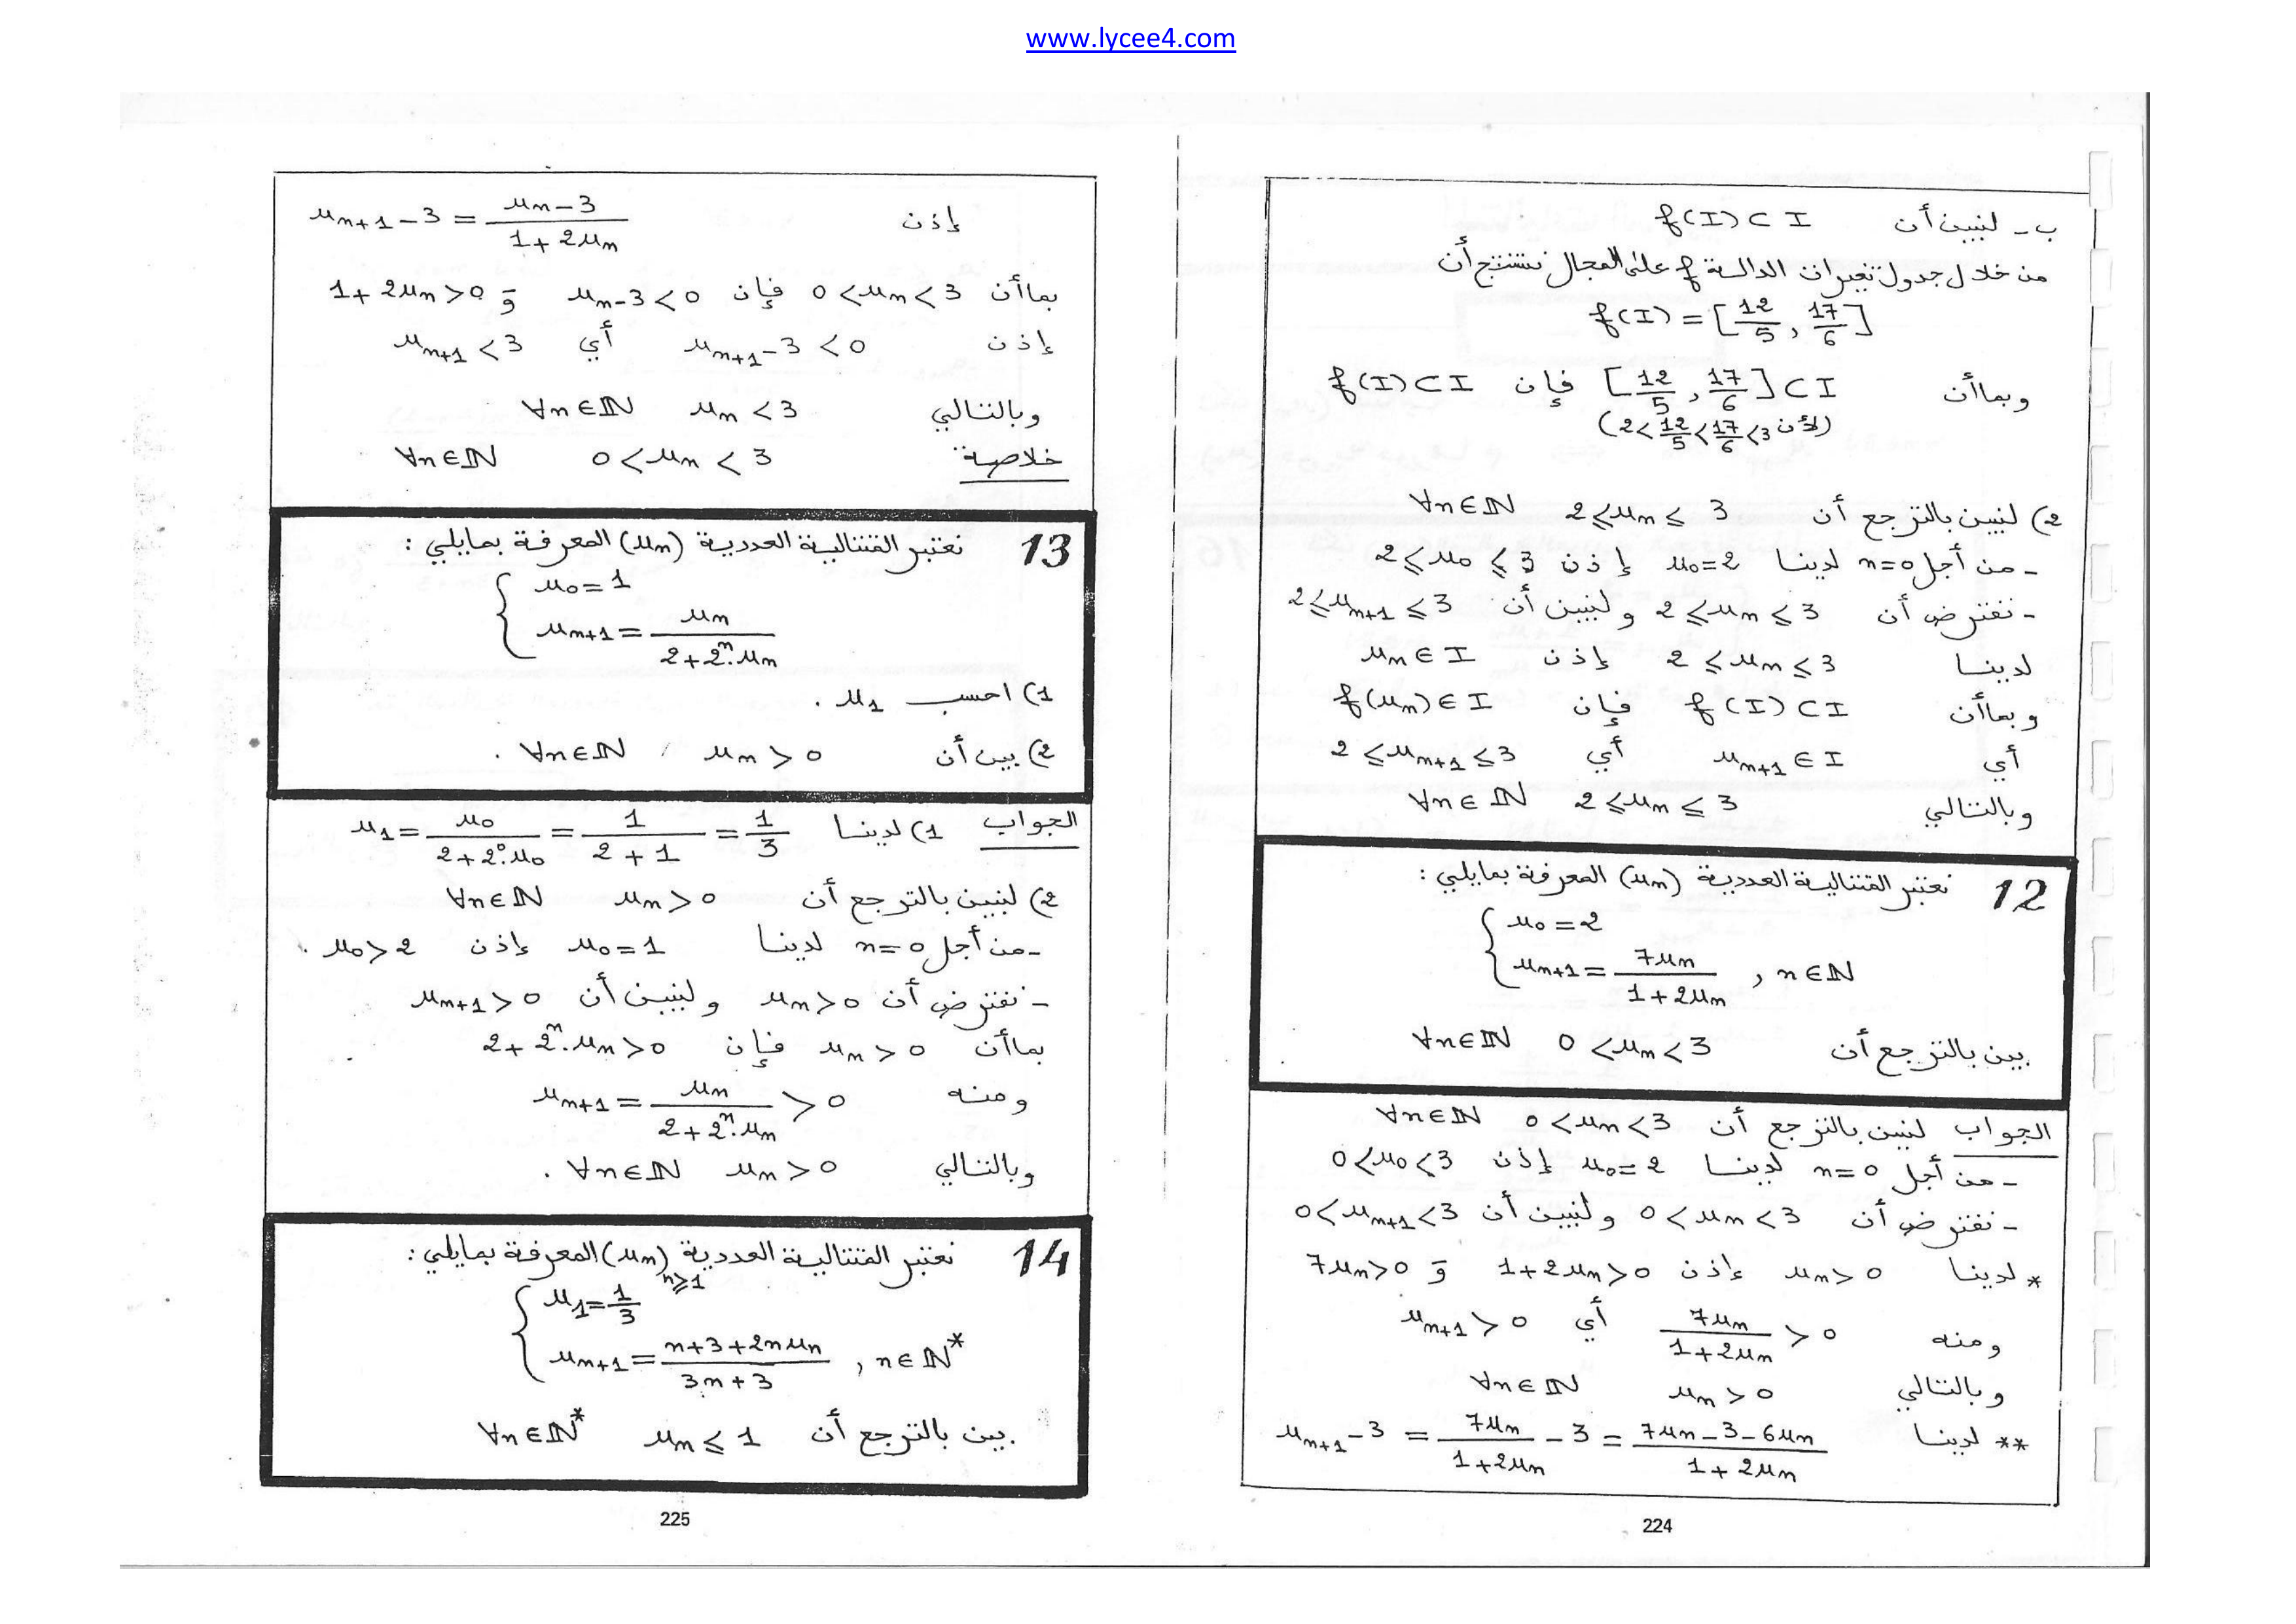 www.lycee4.com
ب - لنبين أن f(I) ⊂ I
من خلال جدول تغيرات الدالة f على المجال نستنتج أن
f(I) = [12/5 , 17/6]
وبما أن [12/5 , 17/6] ⊂ I فإن f(I) ⊂ I
(لأن 2 < 12/5 < 17/6 < 3)
2) لنبين بالترجع أن 2 ⩽ u_n ⩽ 3 ∀n ∈ ℕ
- من أجل n = 0 لدينا u_0 = 2 إذن 2 ⩽ u_0 ⩽ 3
- نفترض أن 2 ⩽ u_n ⩽ 3 ولنبين أن 2 ⩽ u_{n+1} ⩽ 3
لدينا 2 ⩽ u_n ⩽ 3 إذن u_n ∈ I
وبما أن f(I) ⊂ I فإن f(u_n) ∈ I
أي u_{n+1} ∈ I أي 2 ⩽ u_{n+1} ⩽ 3
وبالتالي 2 ⩽ u_n ⩽ 3 ∀n ∈ ℕ
12 نعتبر المتتالية العددية (u_n) المعرفة بمايلي :
u_0 = 2
u_{n+1} = 7u_n / (1 + 2u_n) , n ∈ ℕ
بين بالترجع أن 0 < u_n < 3 ∀n ∈ ℕ
الجواب لنبين بالترجع أن 0 < u_n < 3 ∀n ∈ ℕ
- من أجل n = 0 لدينا u_0 = 2 إذن 0 < u_0 < 3
- نفترض أن 0 < u_n < 3 ولنبين أن 0 < u_{n+1} < 3
* لدينا u_n > 0 إذن 1 + 2u_n > 0 و 7u_n > 0
ومنه 7u_n / (1 + 2u_n) > 0 أي u_{n+1} > 0
وبالتالي u_n > 0 ∀n ∈ ℕ
** لدينا u_{n+1} - 3 = 7u_n / (1 + 2u_n) - 3 = (7u_n - 3 - 6u_n) / (1 + 2u_n)
224
إذن u_{n+1} - 3 = (u_n - 3) / (1 + 2u_n)
بما أن 0 < u_n < 3 فإن u_n - 3 < 0 و 1 + 2u_n > 0
إذن u_{n+1} - 3 < 0 أي u_{n+1} < 3
وبالتالي u_n < 3 ∀n ∈ ℕ
خلاصة 0 < u_n < 3 ∀n ∈ ℕ
13 نعتبر المتتالية العددية (u_n) المعرفة بمايلي :
u_0 = 1
u_{n+1} = u_n / (2 + 2^n . u_n)
1) احسب u_1 .
2) بين أن u_n > 0 ∀n ∈ ℕ .
الجواب 1) لدينا u_1 = u_0 / (2 + 2^0 . u_0) = 1 / (2 + 1) = 1/3
2) لنبين بالترجع أن u_n > 0 ∀n ∈ ℕ
- من أجل n = 0 لدينا u_0 = 1 إذن u_0 > 2 .
- نفترض أن u_n > 0 ولنبين أن u_{n+1} > 0
بما أن u_n > 0 فإن 2 + 2^n . u_n > 0
ومنه u_{n+1} = u_n / (2 + 2^n . u_n) > 0
وبالتالي u_n > 0 ∀n ∈ ℕ .
14 نعتبر المتتالية العددية (u_n)_{n⩾1} المعرفة بمايلي :
u_1 = 1/3
u_{n+1} = (n + 3 + 2n u_n) / (3n + 3) , n ∈ ℕ*
بين بالترجع أن u_n ⩽ 1 ∀n ∈ ℕ*
225